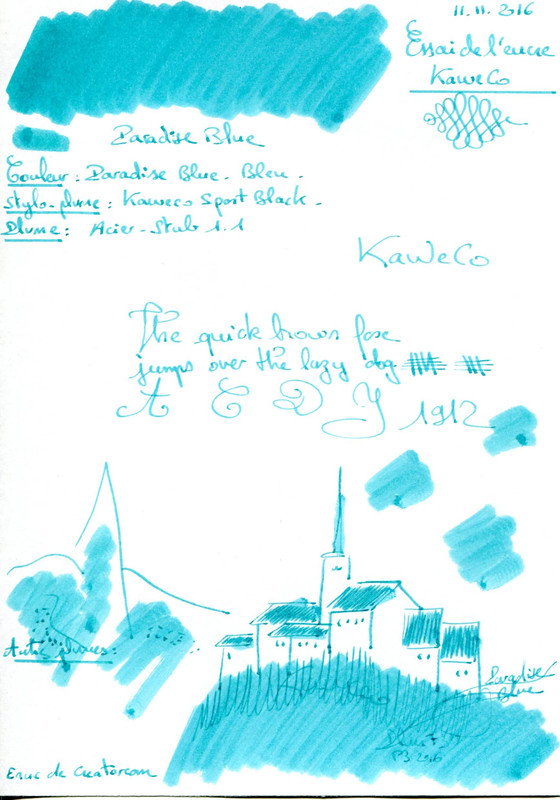 11.11.2016
Essai de l'encre
KaWeCo
Paradise Blue
Couleur : Paradise Blue - Bleu -
Stylo-plume : Kaweco Sport Black -
Plume : Acier - Stub 1.1
KaWeCo
The quick brown fox
jumps over the lazy dog
A C D Y 1912
Autres plumes :
Paradise
Blue
2016